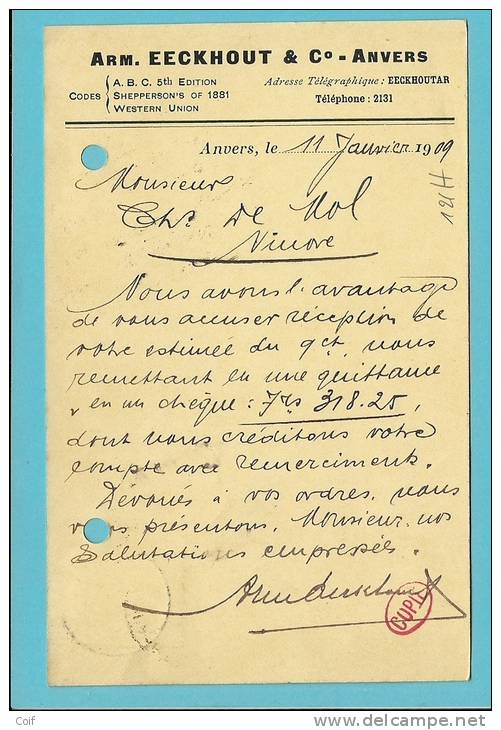 ARM. EECKHOUT & Cº - ANVERS
CODES
A. B. C. 5th EDITION
SHEPPERSON'S OF 1881
WESTERN UNION
Adresse Télégraphique : EECKHOUTAR
Téléphone : 2131
Anvers, le 11 Janvier 1909
121H
Monsieur
Chs De Mol
Ninove
Nous avons l'avantage
de vous accuser réception de
votre estimée du 9ct, nous
remettant en une quittance
" en un chèque : Frs 318.25,
dont nous créditons votre
compte avec remerciments.
Dévoués à vos ordres, nous
vous présentons, Monsieur, nos
Salutations empressées.
Arm Eeckhout
CUPIL
Coif
www.delcampe.net